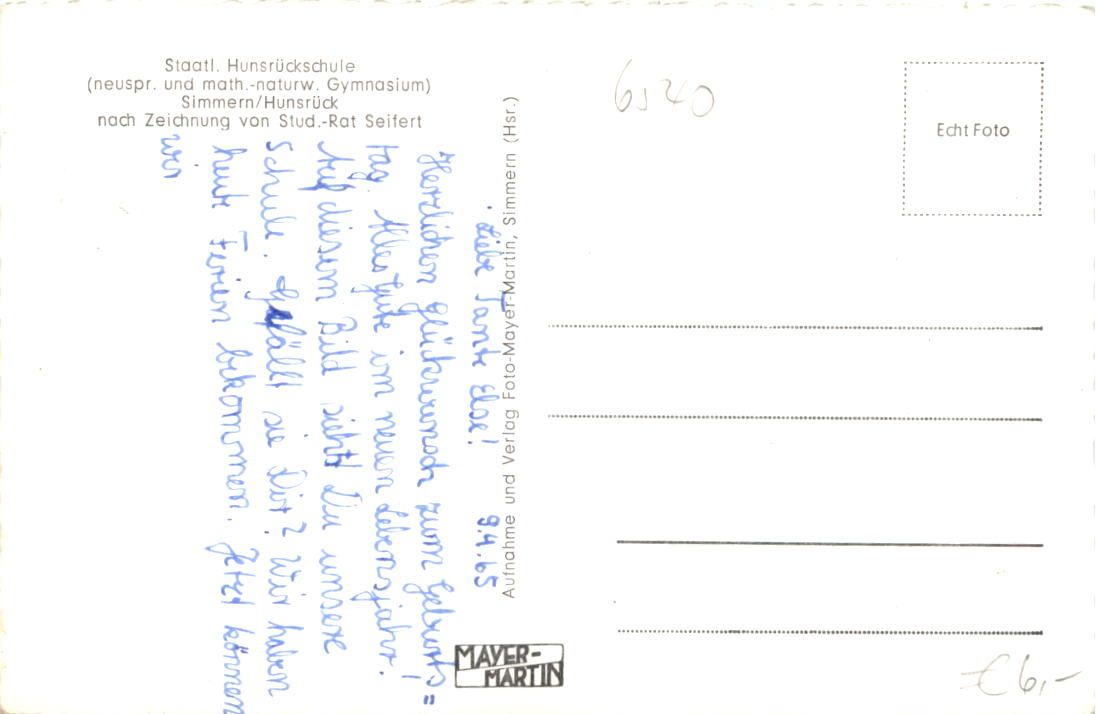 Staatl. Hunsrückschule
(neuspr. und math.-naturw. Gymnasium)
Simmern/Hunsrück
nach Zeichnung von Stud.-Rat Seifert
6540
Echt Foto
Aufnahme und Verlag Foto-Mayer-Martin, Simmern (Hsr.)
9.4.65
Liebe Tante Else!
Herzlichen Glückwunsch zum Geburts=
tag. Alles Gute im neuen Lebensjahr!
Auf diesem Bild siehst Du unsere
Schule. Gefällt sie Dir? Wir haben
heute Ferien bekommen. Jetzt können
wir
MAYER-
MARTIN
€ 6,-